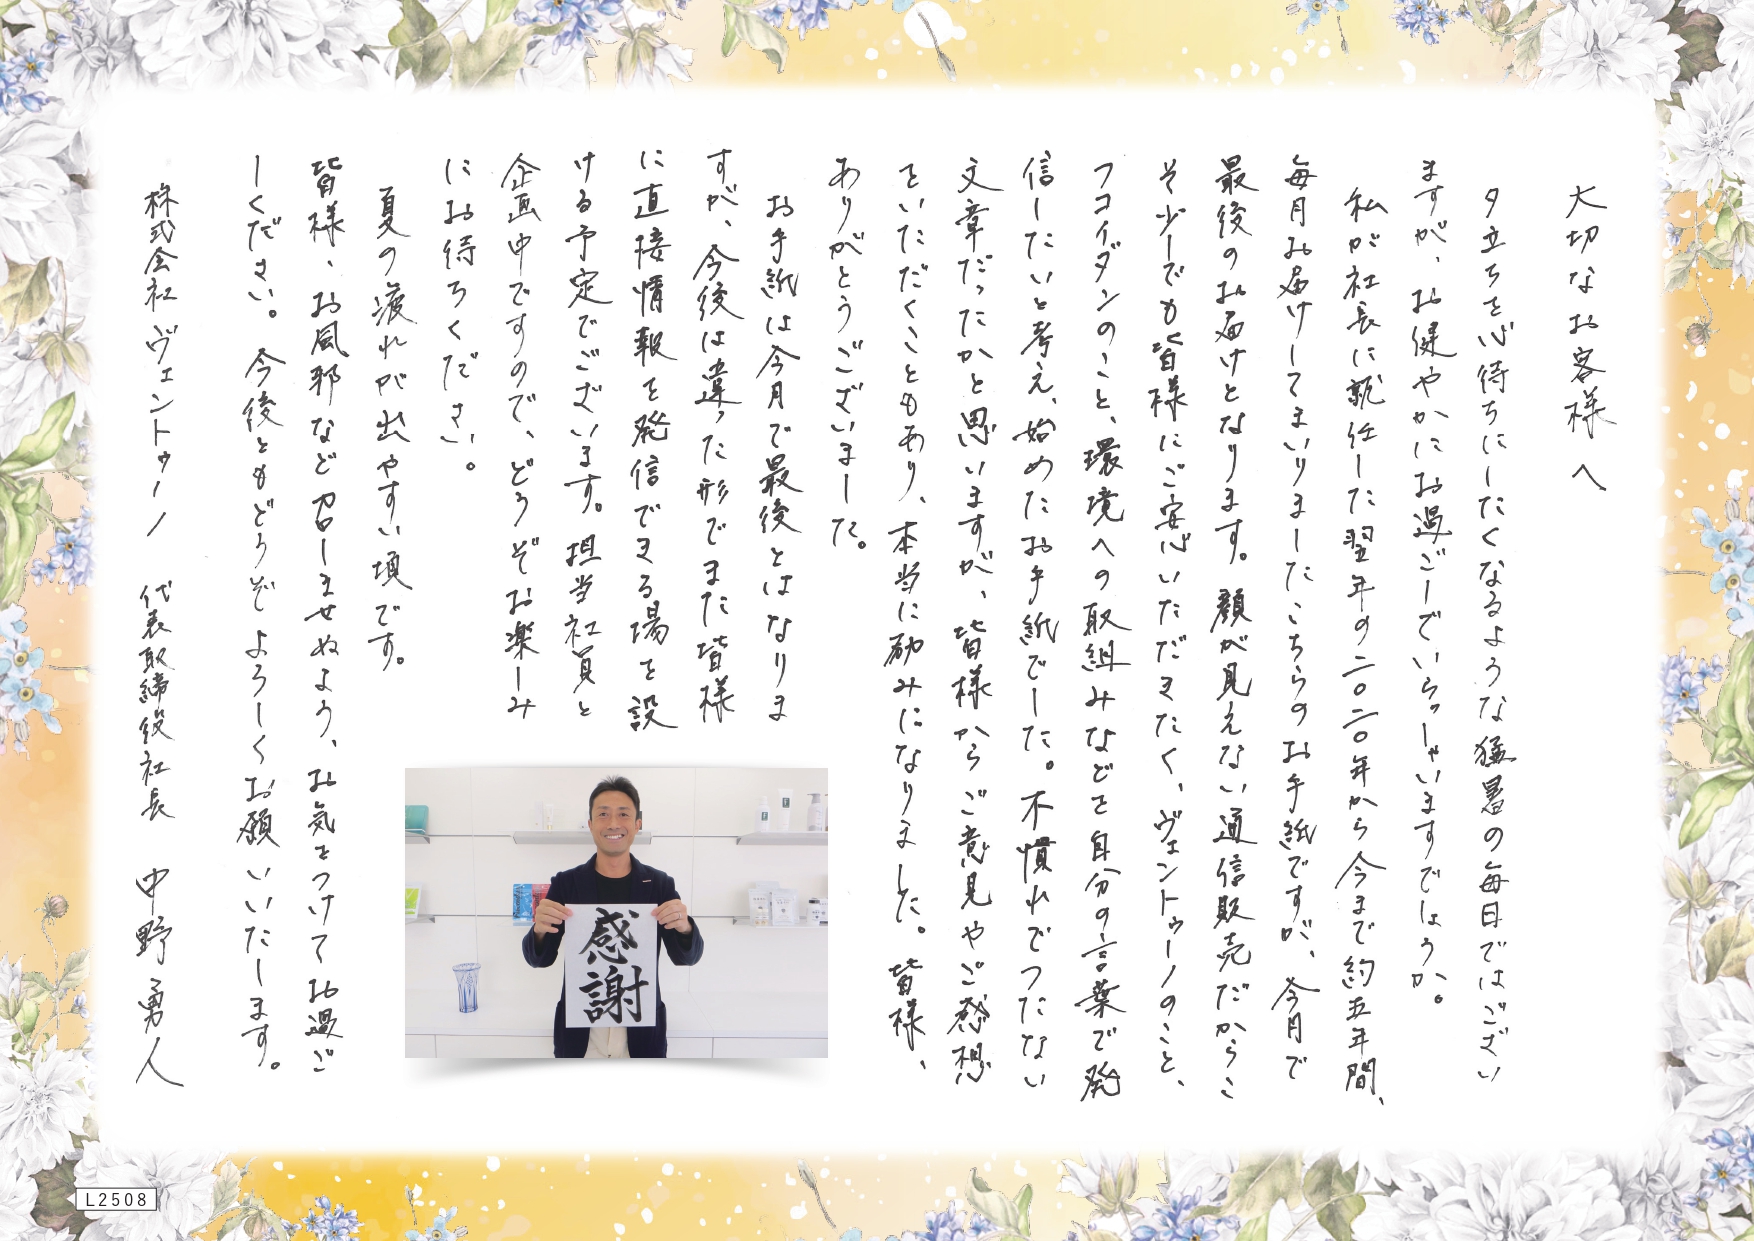 大切なお客様へ
夕立ちを心待ちにしたくなるような猛暑の毎日ではござい
ますが、お健やかにお過ごしでいらっしゃいますでしょうか。
私が社長に就任した翌年の二〇二〇年から今まで約五年間、
毎月お届けしてまいりましたこちらのお手紙ですが、今月で
最後のお届けとなります。顔が見えない通信販売だからこ
そ少しでも皆様にご安心いただきたく、ヴェントゥーノのこと、
フコイダンのこと、環境への取組みなどを自分の言葉で発
信したいと考え、始めたお手紙でした。不慣れでつたない
文章だったかと思いますが、皆様からご意見やご感想
をいただくこともあり、本当に励みになりました。皆様、
ありがとうございました。
お手紙は今月で最後とはなりま
すが、今後は違った形でまた皆様
に直接情報を発信できる場を設
ける予定でございます。担当社員と
企画中ですので、どうぞお楽しみ
にお待ちください。
夏の疲れが出やすい頃です。
皆様、お風邪など召しませぬよう、お気をつけてお過ご
しください。今後ともどうぞよろしくお願いいたします。
株式会社ヴェントゥーノ 代表取締役社長 中野勇人
感謝
L2508